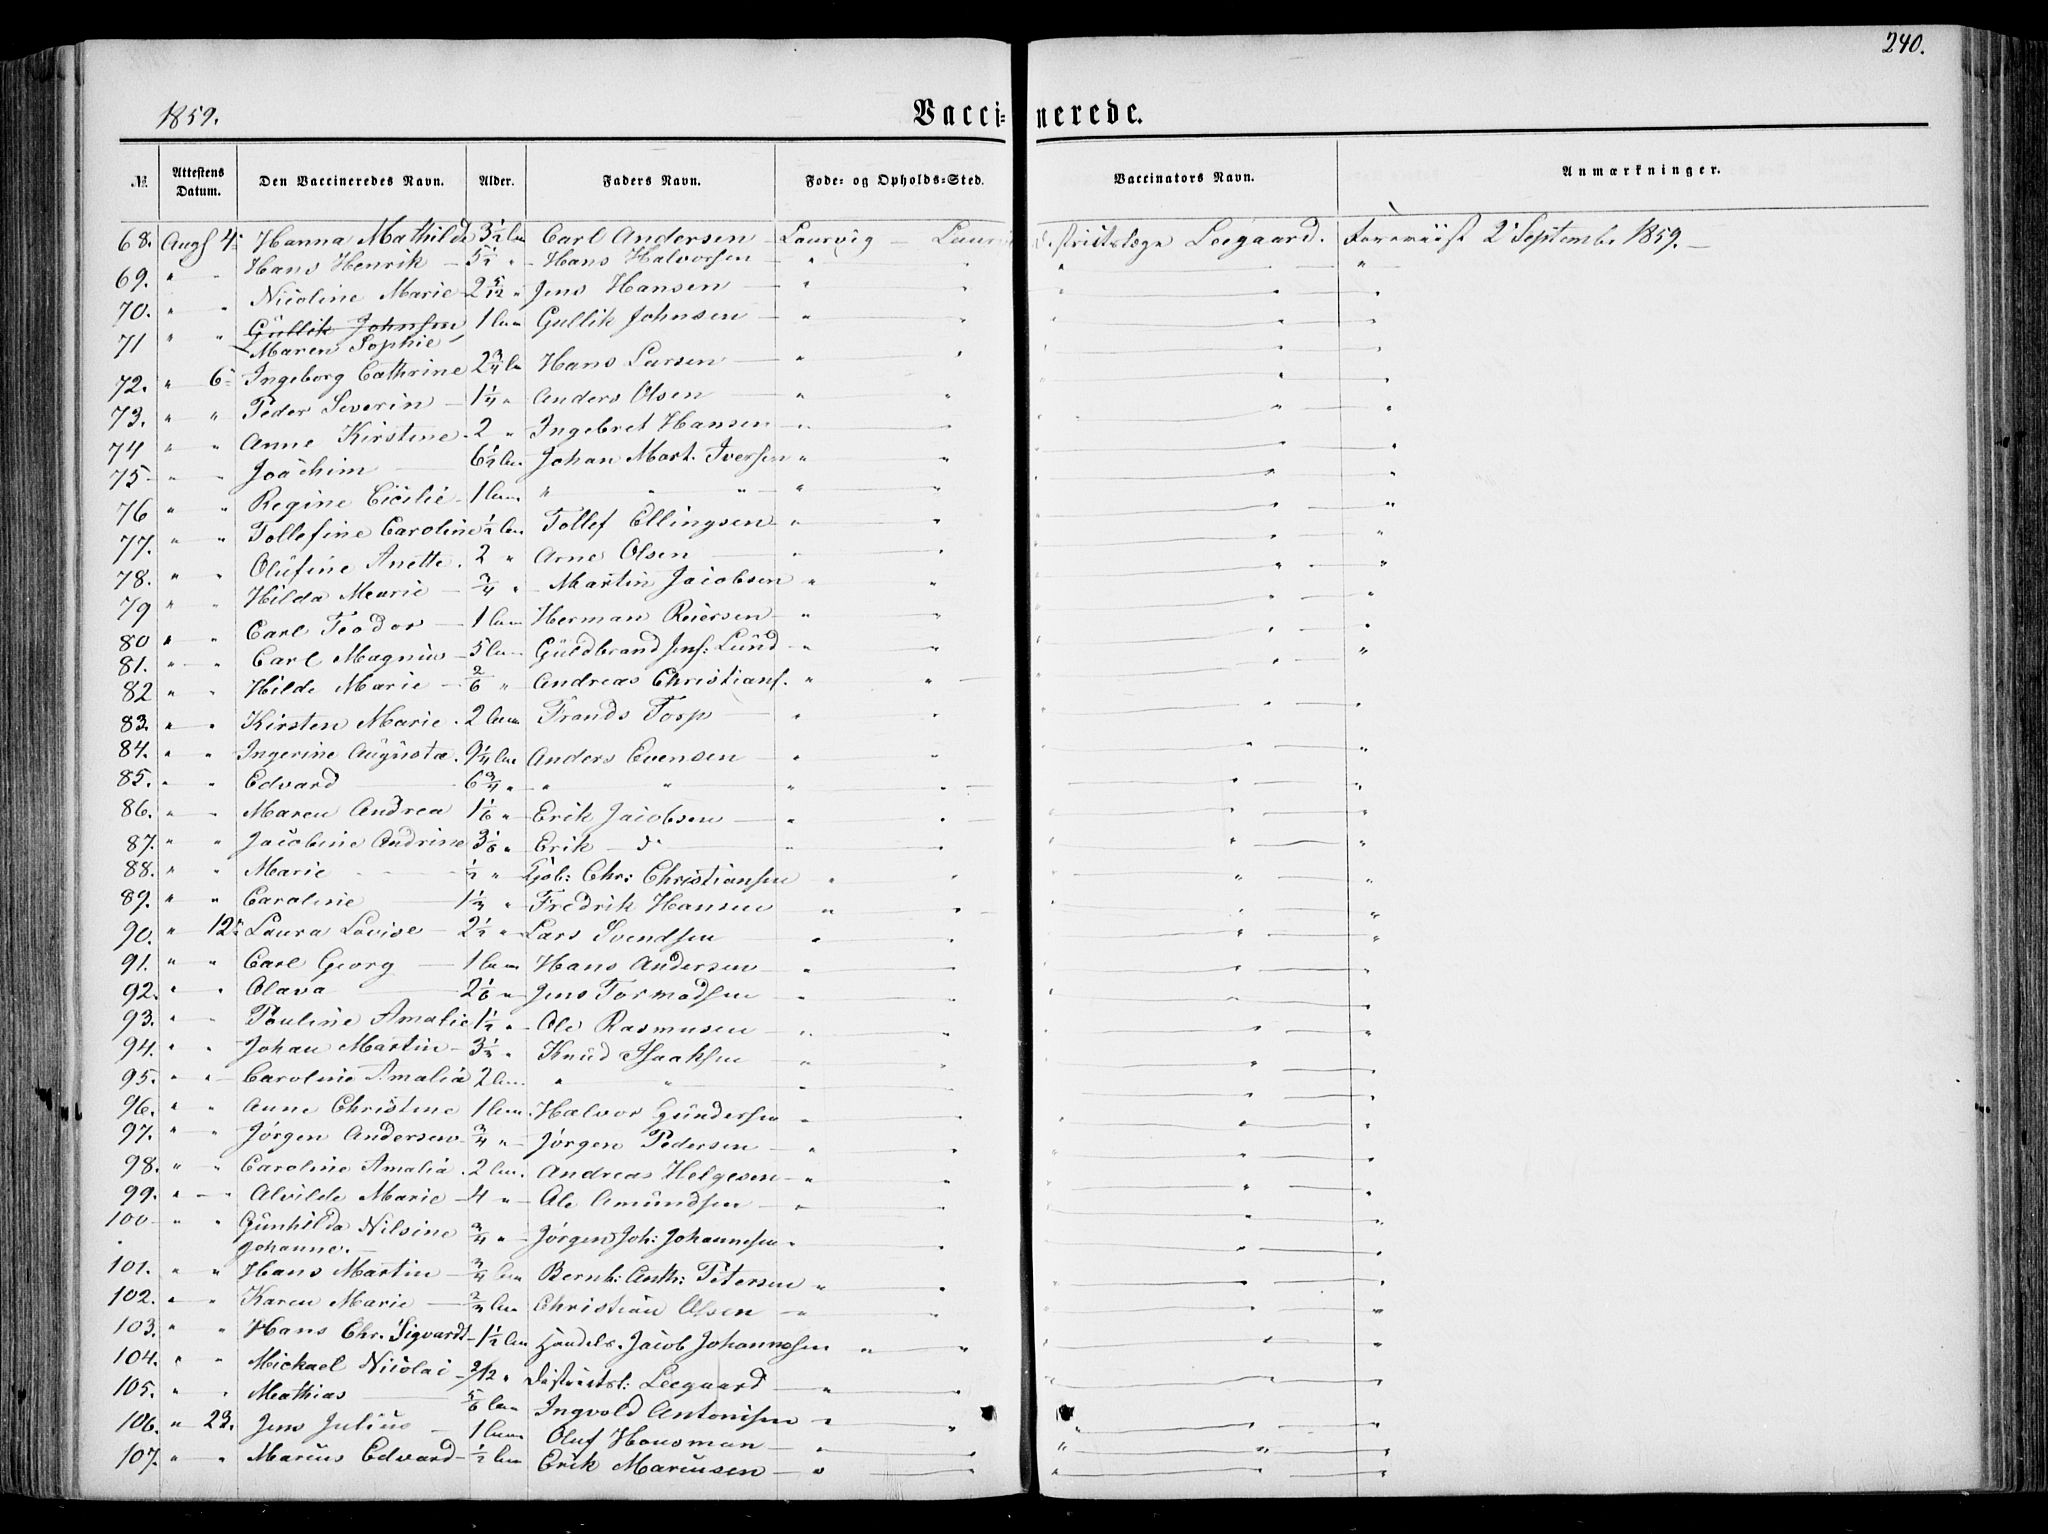 240.
1859.
Vacci=nerede.
№ Attestens Datum. Den Vaccineredes Navn. Alder. Faders Navn. Føde= og Opholds=Sted. Vaccinators Navn. Anmærkninger.
68. Augs 4. Hanna Mathilde 3½ Carl Andersen Laurvig Leegaard. 2 Septembr 1859.
69. " Hans Henrik 5½ " Hans Halvorsen " " " "
70. " " Nicoline Marie 2 5/12 " Jens Hansen " " " "
71 " " Gullik Johnsen 1 Gullik Johnsen " " " "
Maren Sophie
72. " 6 Ingeborg Cathrine 2¾ Hans Larsen " " " "
73. " " Peder Severin 1¼ " Anders Olsen " " " "
74 " " Anne Kirstine 2 " Ingebret Hansen " " " "
75 " " Joachim 6½ Johan Mart. Iversen " " " "
76 " " Regine Cicilie 1 " " " " " " "
77. " " Tollefine Caroline ½ Tollef Ellingsen " " " "
78. " " Olufine Anette 2 " Arne Olsen " " " "
79 " " Hilda Marie ¾ " Martin Jacobsen " " " "
80 " " Carl Teodor 1 Herman Reiersen " " " "
81. " " Carl Magnus 5 Guldbrand Jens: Lund " " " "
82 " " Hilde Marie 2/6 " Andreas Christians. " " " "
83. " " Kirsten Marie 2 Frands " " " "
84. " " Ingerine Augusta 9¼ Anders Evensen " " " "
85. " " Edvard 6¾ " " " " " " "
86. " " Maren Andrea 1 1/6 " Erik Jacobsen " " " "
87. " " Jacobine Andrine 3 1/6 " Erik do " " " "
88. " " Marie ½ " Chr: Christiansen " " " "
89. " " Caroline 1⅓ " Fredrik Hansen " " " "
90. " 12 Laura Lovise 2½ " Lars Svendsen " " " "
91. " " Carl Georg 1 Hans Andersen " " " "
92. " " Olava 2 1/6 " Jens Tormodsen " " " "
93. " " Pauline Amalie 1½ " Ole Rasmusen " " " "
94. " " Johan Martin 3½ " Knud Isaaksen " " " "
95. " " Caroline Amalia 2 " " " " " "
96. " " Anne Christine 1 Halvor Gundersen " " " "
97. " " Jørgen Andersen ¾ " Jørgen Pedersen " " " "
98. " " Caroline Amalia 2 Andreas Helgesen " " " "
99. " " Alvilde Marie 4 " Ole Amundsen " " " "
100 " " Gunhilda Nilsine ¾ " Jørgen Joh: Johannesen " " " "
Johanne.
101. " " Hans Martin ¾ Bernh: Anth: Petersen " " " "
102. " " Karen Marie Christian Olsen " " " "
103. " " Hans Chr. Sigvardt 1½ Handels. Jacob Johannesen " " " "
104. " " Mickael Nicolai 9/12 " Districtsl: Leegaard " " " "
105. " " Mathias 5/6 Ingvold Antonisen " " " "
106. " 23. Jens Julius 1 Oluf Housman " " " "
107. " " Marius Edvard ½ Erik Mariusen " " " "